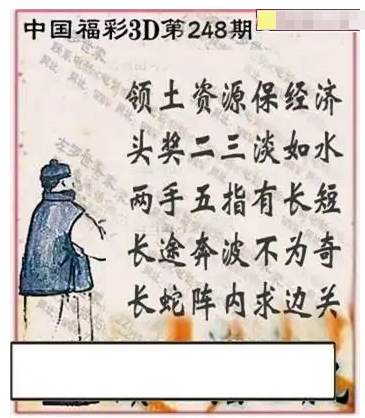 中国福彩3D第248期
领土资源保经济
头奖二三淡如水
两手五指有长短
长途奔波不为奇
长蛇阵内求边关